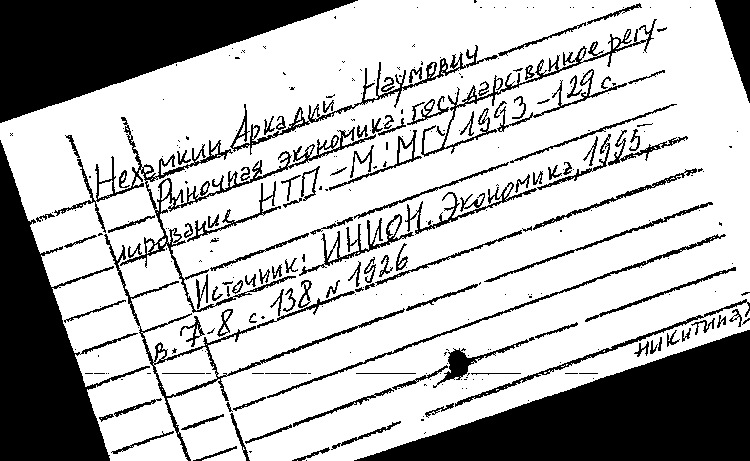 Нехамкин, Аркадий Наумович
Рыночная экономика: государственное регу-
лирование НТП. - М.: МГУ, 1993. - 129 с.
Источник: ИНИОН. Экономика, 1995,
в. 7-8, с. 138, N 1926
никитина